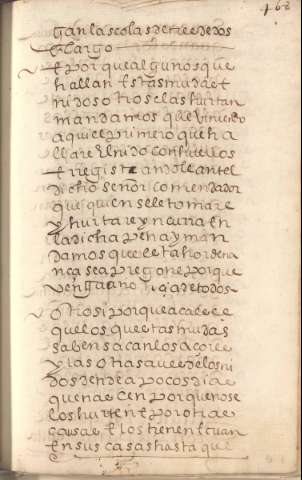 168
gan las colas de tre e de dos
e largo
e porque algunos que
hallan estas mudas e
nidos o otros se las hurtan
mandamos que viniendo
aqui el primero que ha
llare el nido con fuellos
e registrandole antel
dicho señor comendador
que quien se le tomare
y hurtare yncurra en
la dicha pena y man
damos que esta hordena
nça sea pregone porque
venga a no tiçia de todos
otrosi porque acaeçe
que los que estas mudas
saben sacan los açores
y las otras aves de los ni
dos dende a pocos dias
que naçen porque no se
los hurten e por otras
causas e los tienen e crian
en sus casas hasta que